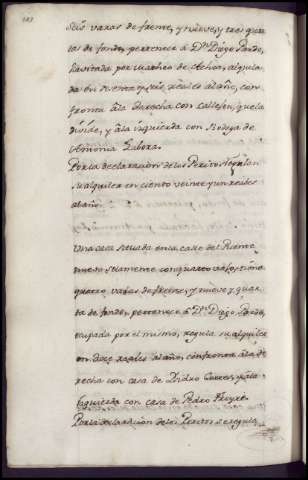 Seis varas de frente, y nueve, y tres quar
tas de fondo, pertenece á Dn. Diego Pardo,
havitada por de Achas, alquila
da en y seis reales al año, con
fronta á la derecha con callejon, que la
divide, y á la izquierda con Bodega de
Antonia
Por la declaracion de los Peritos regulan
su alquiler en ciento veinte y un reales
al año.
Una casa situada en la calle del
mero Siete con quarto vajo, tiene
quatro varas de frente, y nueve y quar
ta de fondo, pertenece á Dn. Diego Pardo,
ocupada por el mismo, regula su alquiler
en doze reales al año, confronta á la de
recha con casa de Pedro y á la
izquierda con casa de Pedro
Por la declaracion de los Peritos se regula